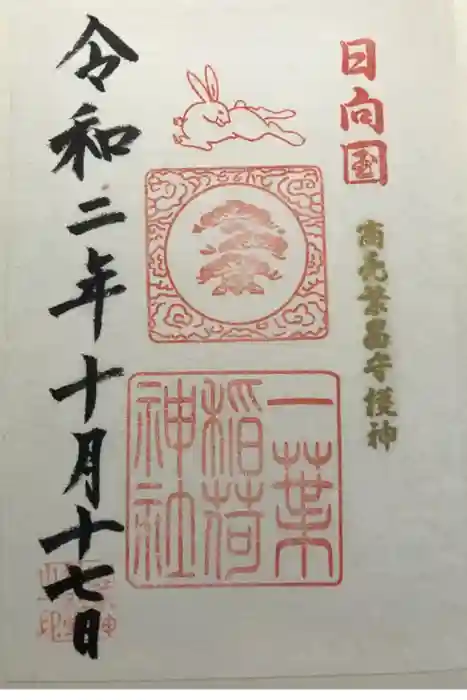 日向国
商売繁昌守護神
一葉
稲荷
神社
令和二年十月十七日